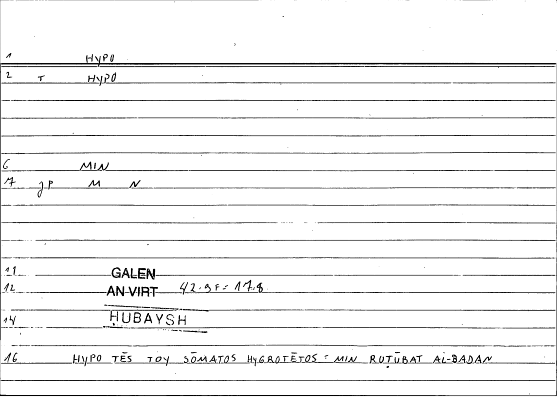 1 HYPO
2 T HYPO
6 MIN
7 JP M N
11 GALEN
12 AN VIRT 42.9F = 17.8
14 ḤUBAYSH
16 HYPO TĒS TOY SŌMATOS HYGROTĒTOS = MIN RUṬŪBAT AL-BADAN